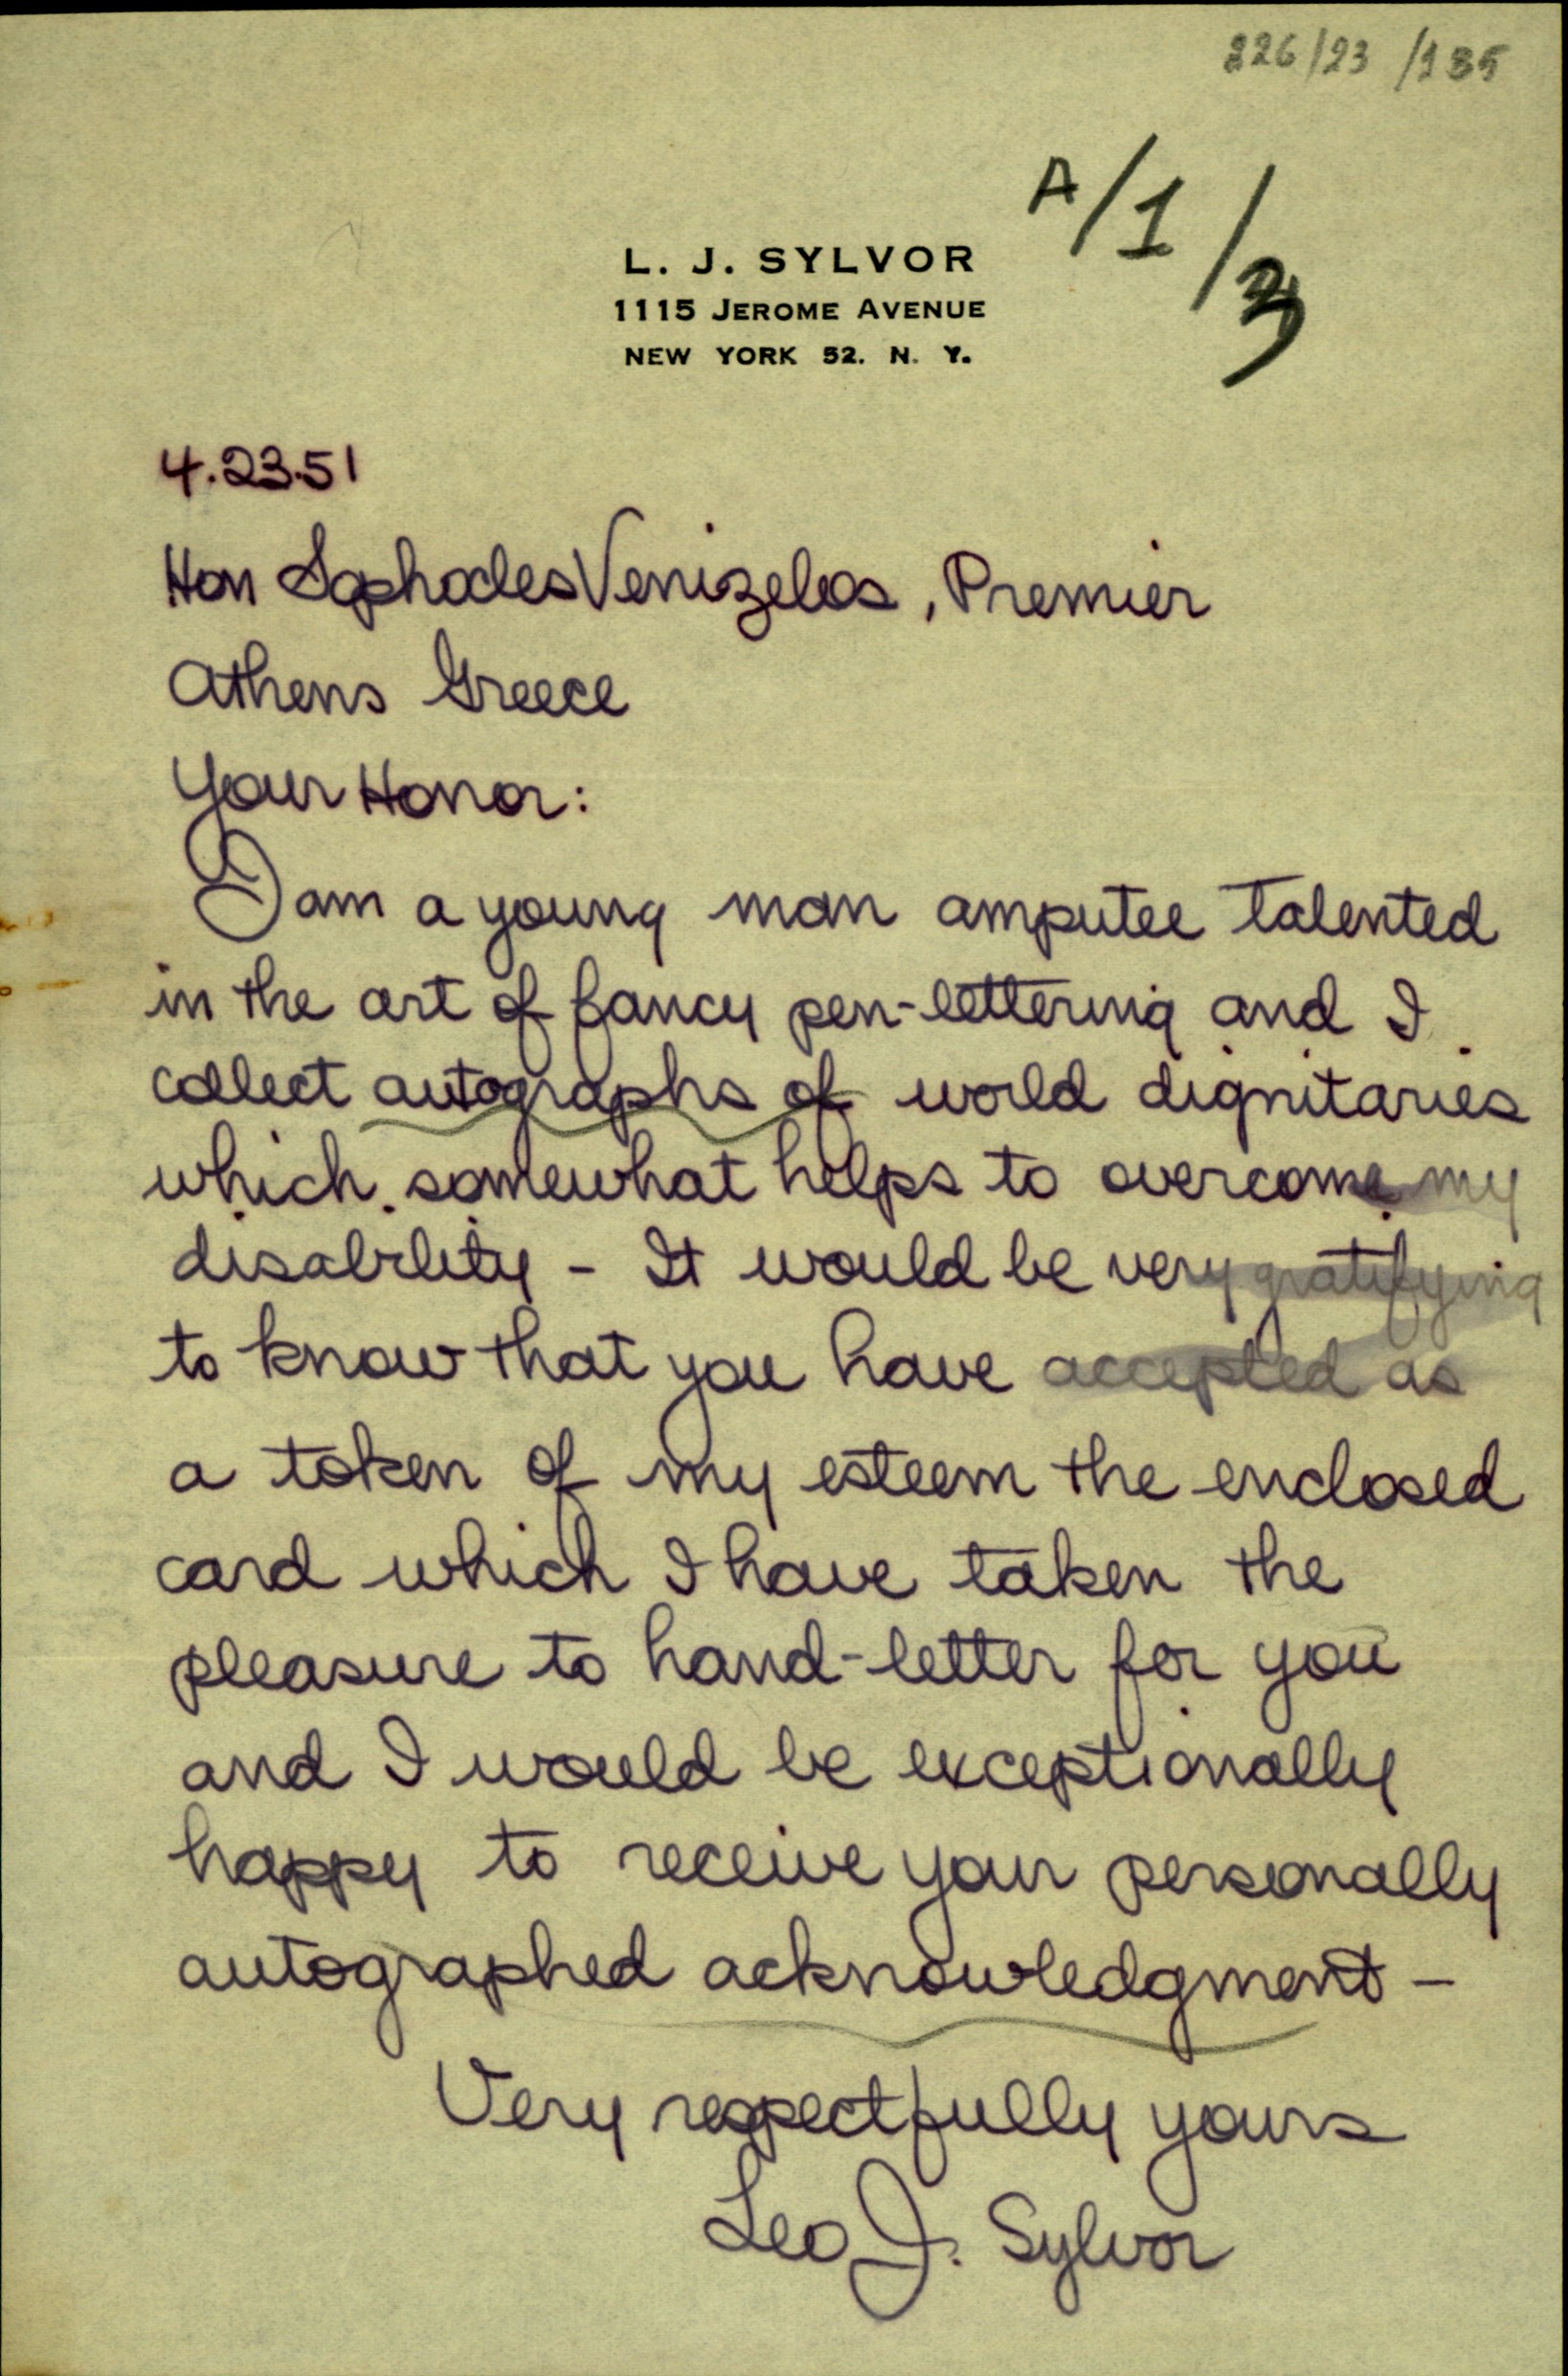 226/23/185
A/1/3
L. J. SYLVOR
1115 JEROME AVENUE
NEW YORK 52. N. Y.
4.23.51
Hon Sophocles Venizelos, Premier
Athens Greece
Your Honor:
I am a young man amputee talented
in the art of fancy pen-lettering and I
collect autographs of world dignitaries
which somewhat helps to overcome my
disability - It would be very gratifying
to know that you have accepted as
a token of my esteem the enclosed
card which I have taken the
pleasure to hand-letter for you
and I would be exceptionally
happy to receive your personally
autographed acknowledgment -
Very respectfully yours
Leo J. Sylvor